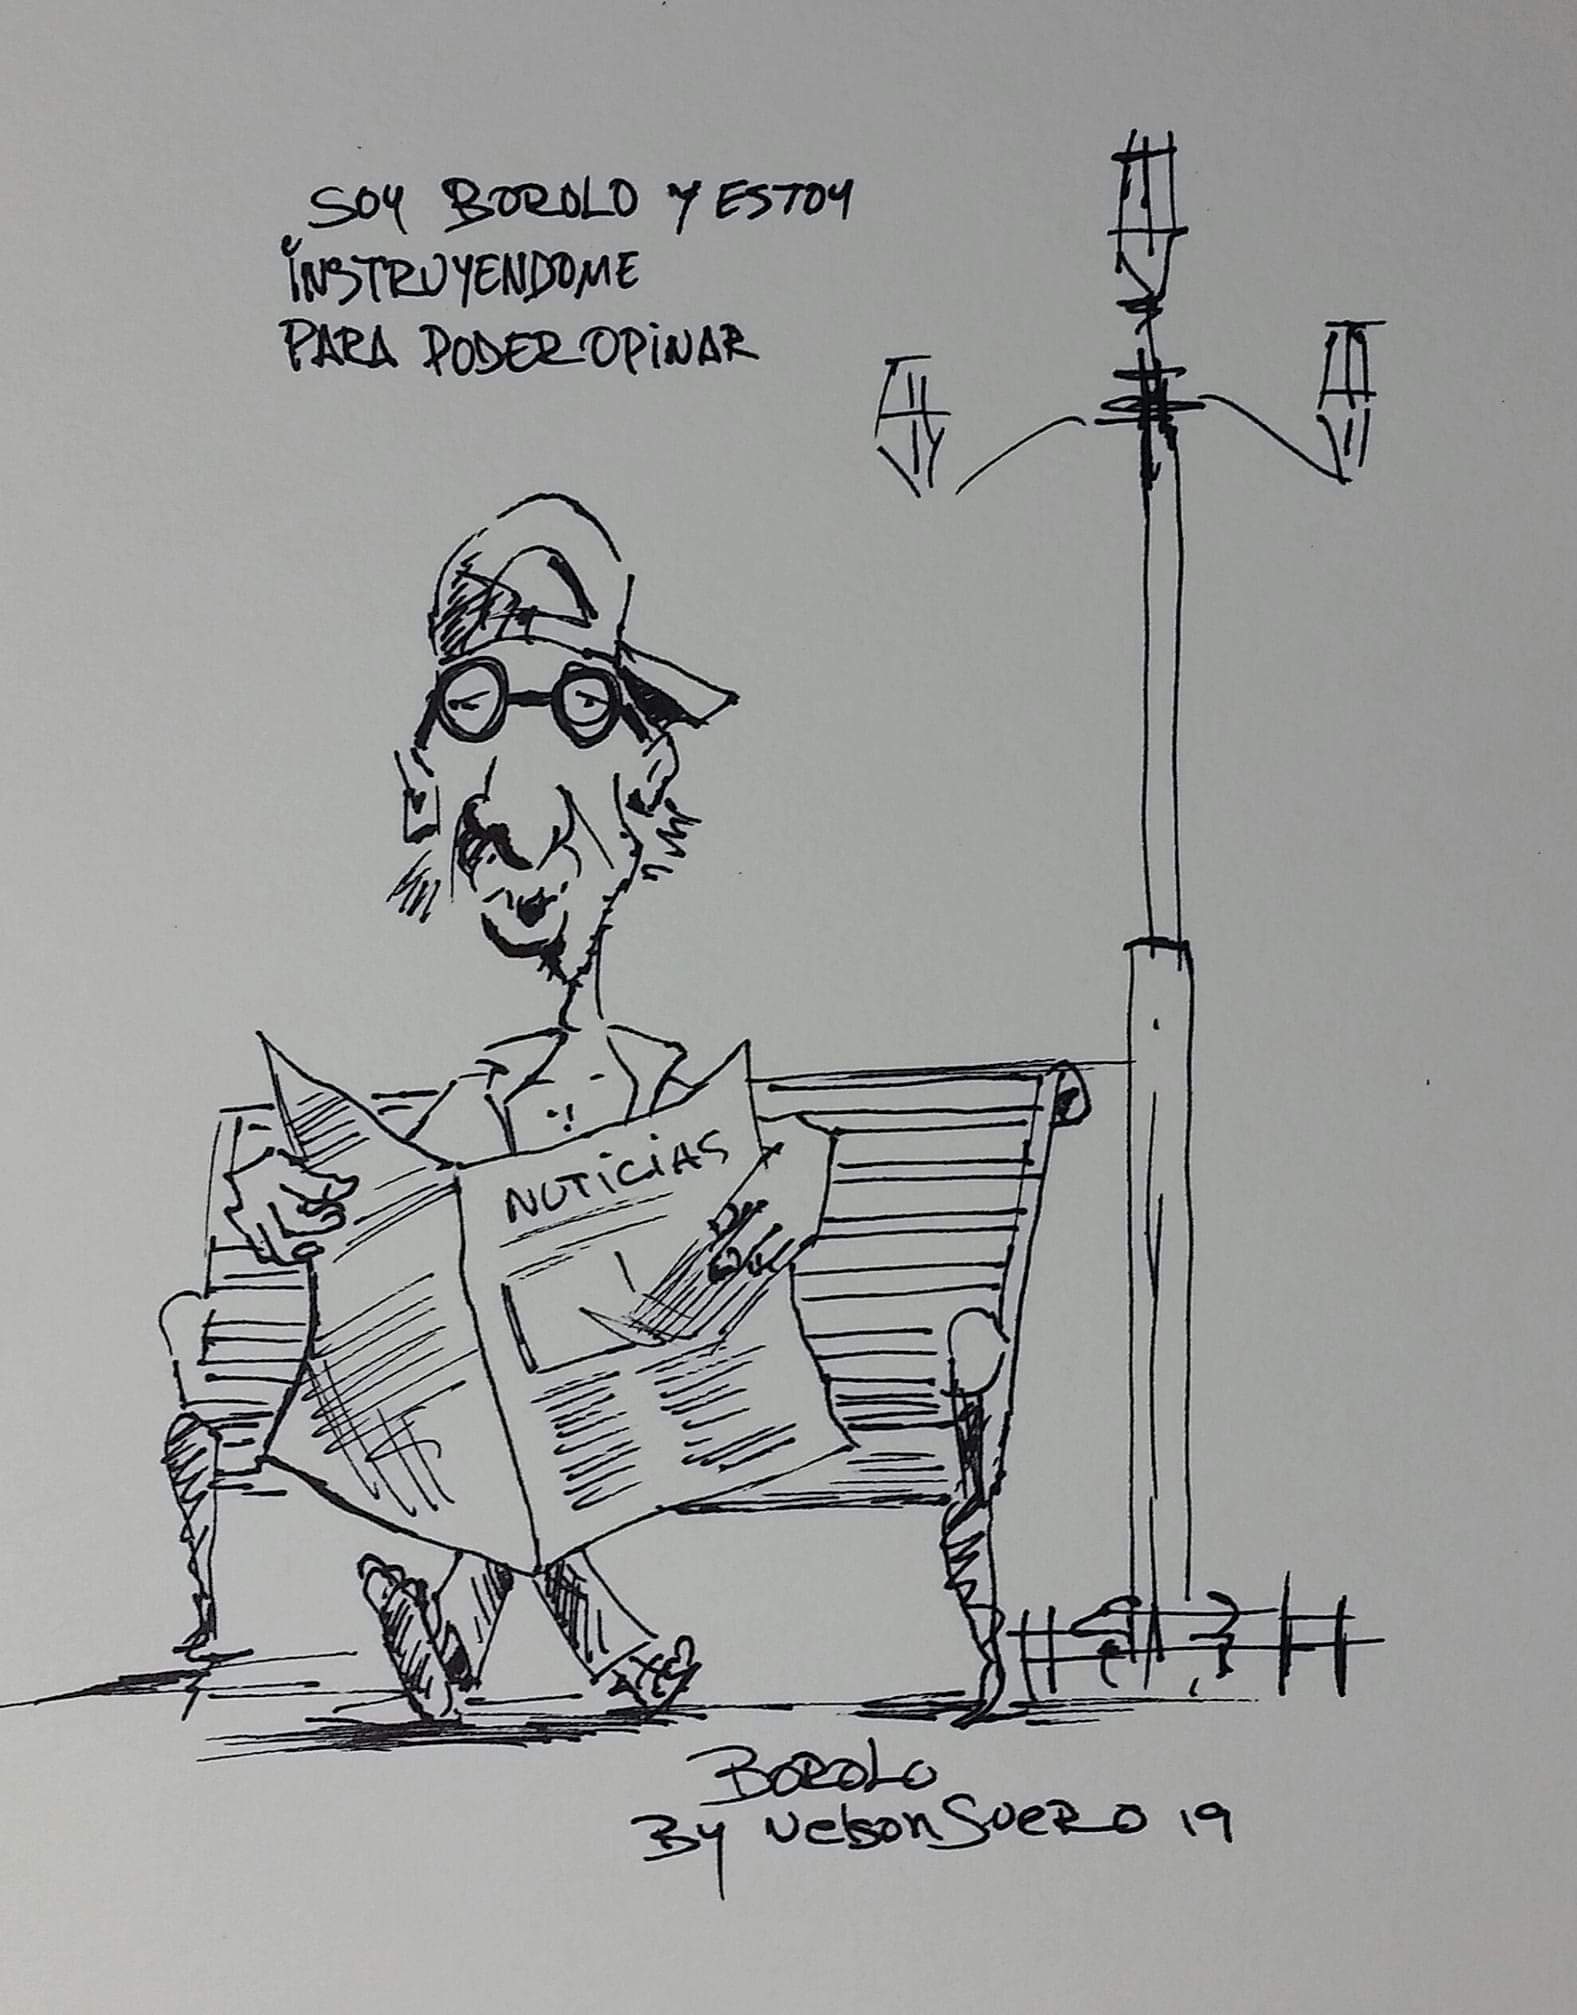 SOY BOROLO Y ESTOY
INSTRUYENDOME
PARA PODER OPINAR
NOTICIAS
BOROLO
By Nelson SUERO 19